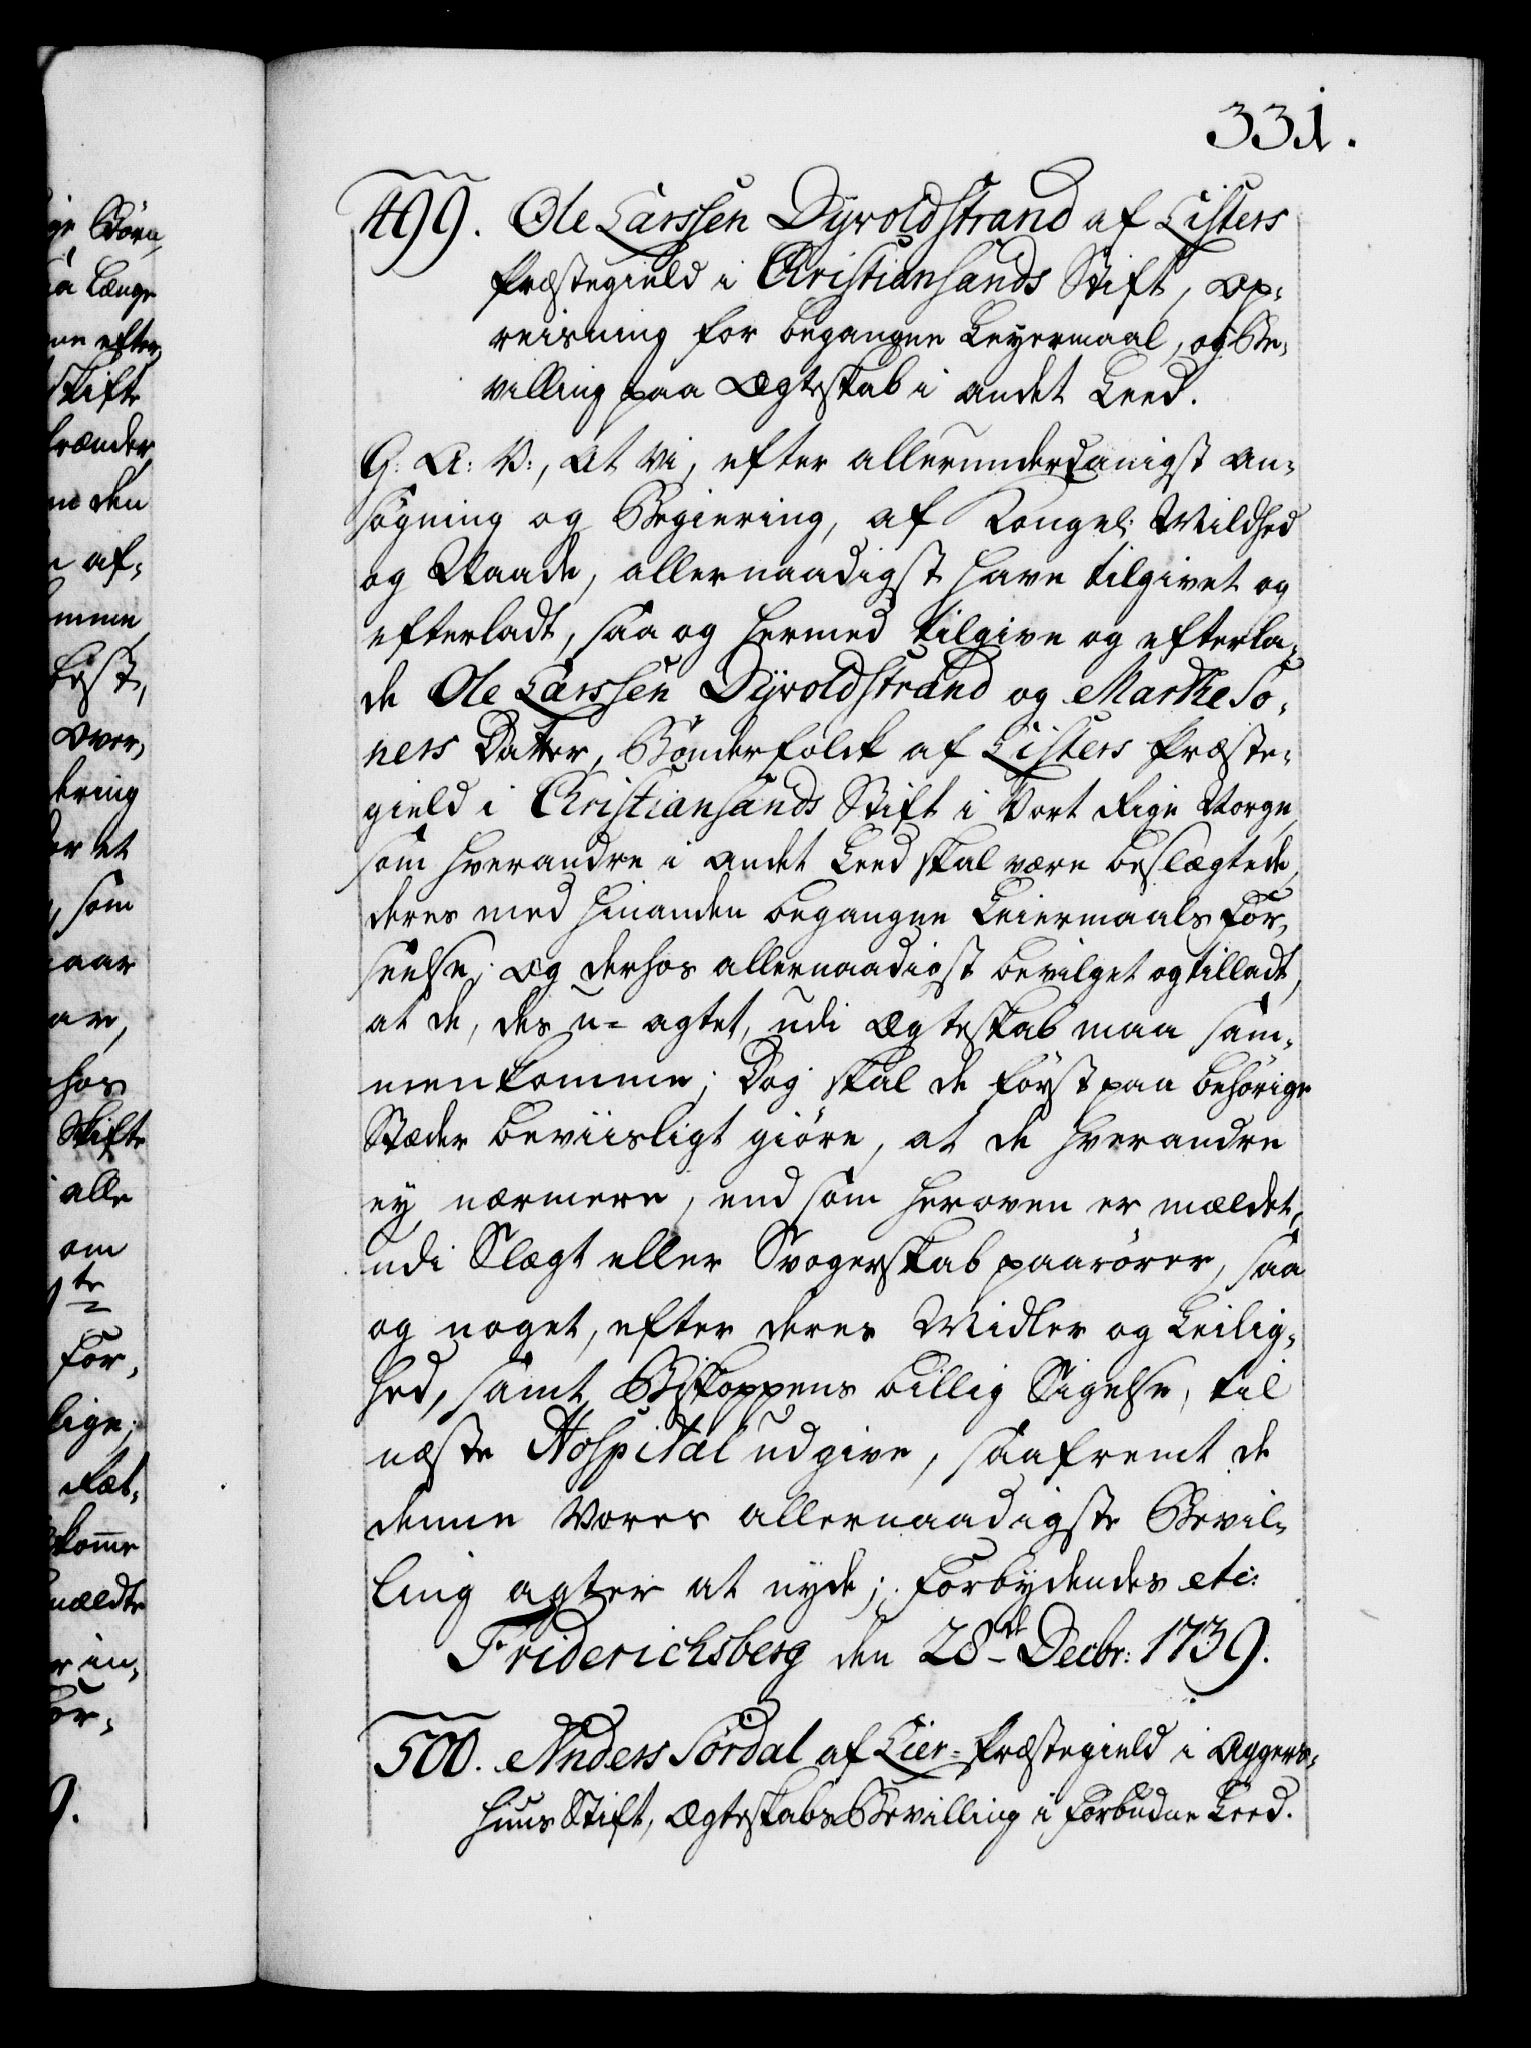 331.
ige Börn,
saa Længe
efter
Skifte
frænder
den
af-
Over,
dering
for et
, som
hos
Skifte
alle
om
te
For-
lige;
Ræt-
komme
mældte
in-
for-
9.
499. Ole Larssen Dyvoldstrand af Listers
Præstegield i Christiansands Stift, Op-
reisning for begangne Leyermaal, og Be-
villing paa Ægteskab i andet Leed.
G: A: V:, At Vi, efter allerunderdanigst an-
søgning og Begiering, af Kongel: Mildhed
og Naade, allernaadigst have tilgivet og
efterladt, saa og hermed tilgive og efterla-
de Ole Larssen Dyvoldstrand og Marthe To-
ners Datter, Bönderfolck af Listers Præste-
gield i Christiansands Stift i Vort Rige Norge,
som hverandre i andet Leed skal være beslægtede,
deres med hinanden begangne Leiermaals For-
seelse; Og derhos allernaadigst bevilget og tilladt,
at de, des u-agtet, udi Ægteskab maa sam-
menkomme; Dog skal de först paa behörige
Stæder beviisligt giöre, at de hverandre
ey nærmere, end som heroven er mældet,
udi Slægt eller Svogerskab paarörer, saa
og noget, efter deres Midler og Leilig-
hed, samt Biskoppens billig Sigelse, til
næste Hospital udgive, saafremt de
denne Vores allernaadigste Bevil-
ling agter at nyde; Forbydendes etc:
Friderichsberg den 28de Decbr: 1739.
500. Anders Sördal af Lier-Præstegield i Aggers-
huus Stift, Ægteskabs Bevilling i forbudne Leed.